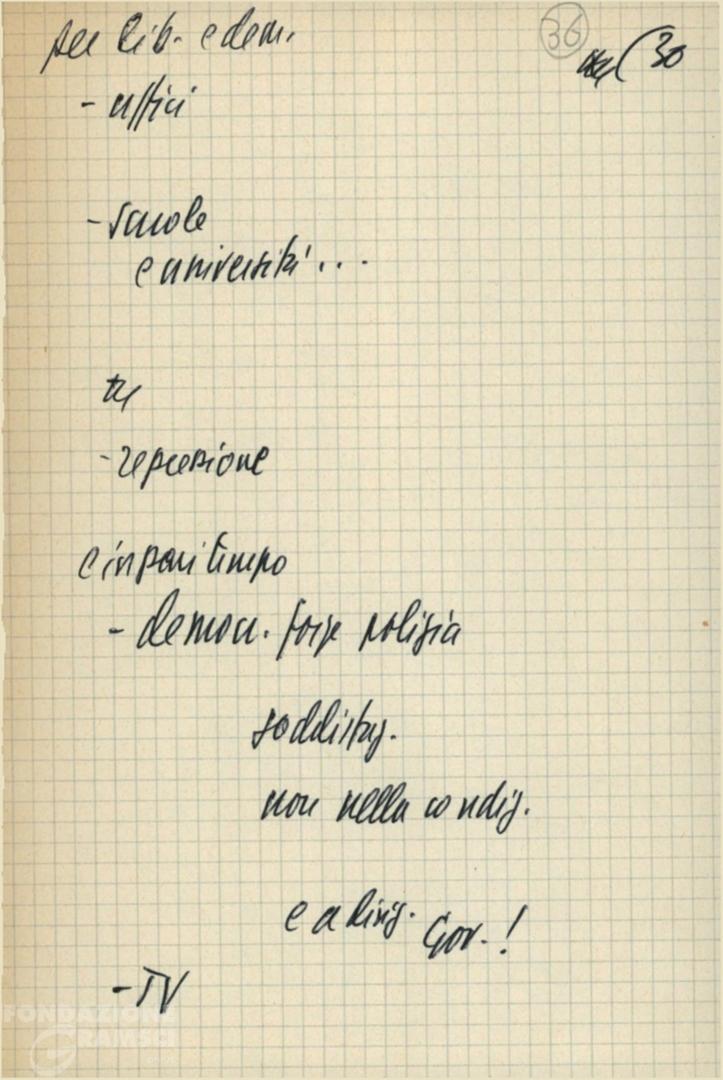 per lib. e dem.
36
(30
- uffici
- scuole
e università ...
- repressione
e in pari tempo
- democr. forze polizia
soddisfaz.
non nella condiz.
e a dirig. Gov. !
- TV
FONDAZIONE
GRAMSCI